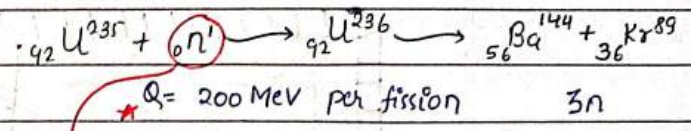 . ₉₂U²³⁵ + ₀n¹ → ₉₂U²³⁶ → ₅₆Ba¹⁴⁴ + ₃₆Kr⁸⁹
★ Q = 200 MeV per fission 3n